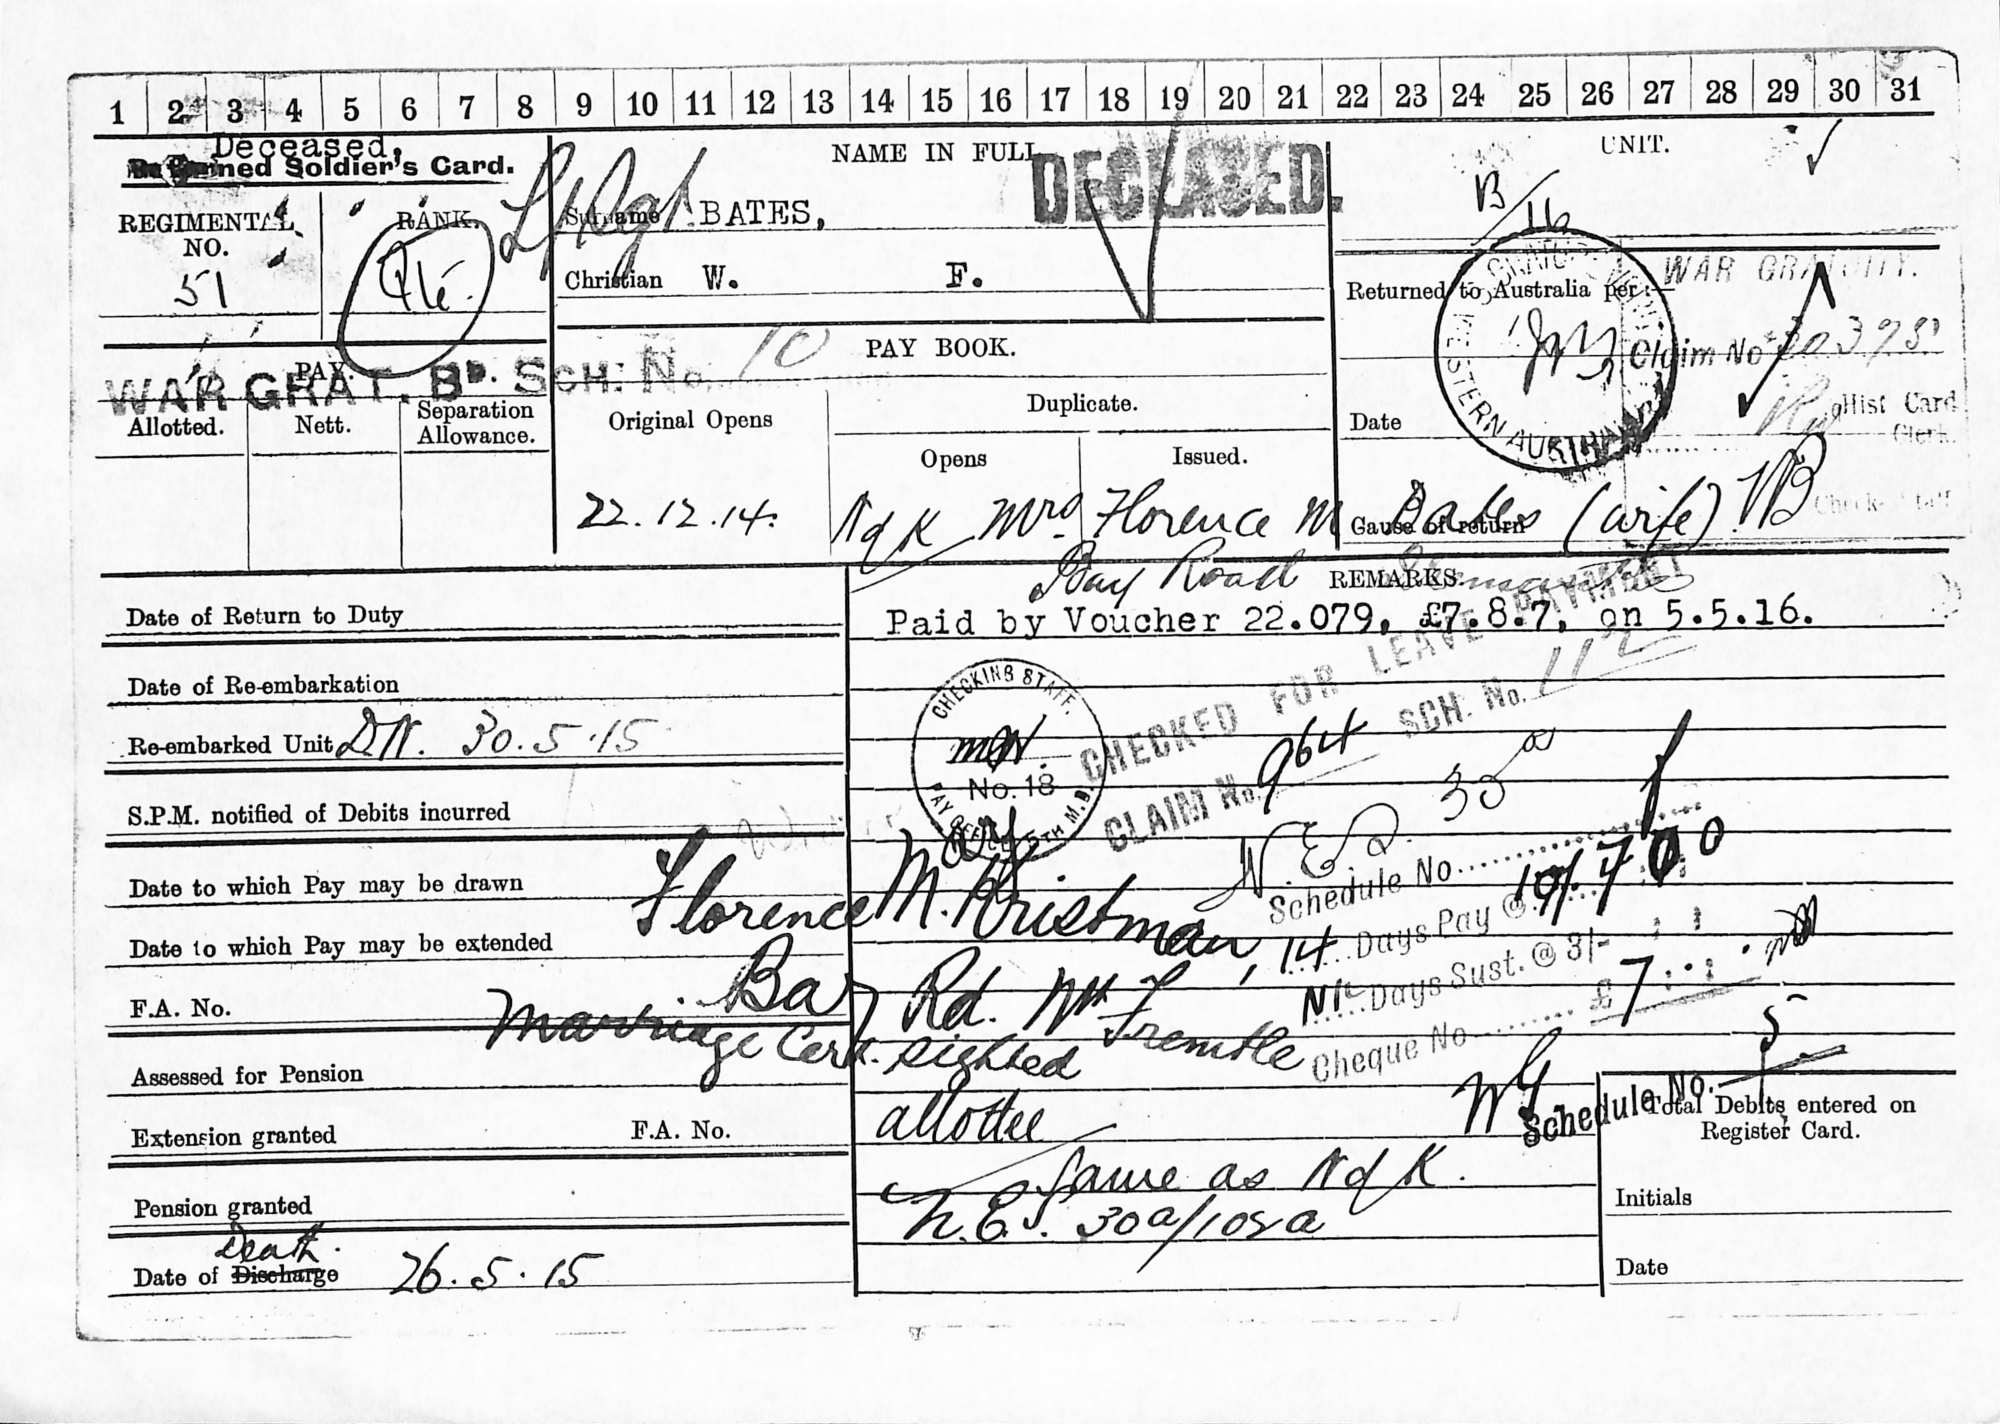 1 2 3 4 5 6 7 8 9 10 11 12 13 14 15 16 17 18 19 20 21 22 23 24 25 26 27 28 29 30 31
Deceased,
ned Soldier's Card.
REGIMENTAL NO.
51
RANK.
Pte.
L/Sgt
NAME IN FULL
DECEASED.
Surname BATES,
Christian W. F.
UNIT.
B/16
WAR GRATUITY.
Returned to Australia per:—
Claim No
Hist Card
Clerk.
Date
WESTERN AUSTRALIA
PAY.
WAR GRAT. BD. SCH: No. 10
Allotted.
Nett.
Separation Allowance.
PAY BOOK.
Original Opens
22.12.14.
Duplicate.
Opens
Issued.
N of K Mrs Florence M Bates (wife)
Cause of return
Bay Road
REMARKS
Paid by Voucher 22.079, £7.8.7, on 5.5.16.
CHECKED FOR LEAVE PAYMENT
CLAIM No. 964 SCH. No. 112
CHECKING STAFF.
No. 18
PAY OFFICE 5TH M.D.
Date of Return to Duty
Date of Re-embarkation
Re-embarked Unit D.N. 30.5.15
S.P.M. notified of Debits incurred
Date to which Pay may be drawn
Date to which Pay may be extended
F.A. No.
Assessed for Pension
Extension granted F.A. No.
Pension granted
Death.
Date of Discharge 26.5.15
Florence M. Kristman,
Bay Rd. Nth Fremtle
Marriage Cert. sighted
allottee
Same as N of K.
N.E. 30a/102a
Schedule No.
14 Days Pay @ 10/- 7 0 0
Nil Days Sust. @ 3/-
£ 7
Cheque No
Schedule No. 5
Total Debits entered on Register Card.
Initials
Date